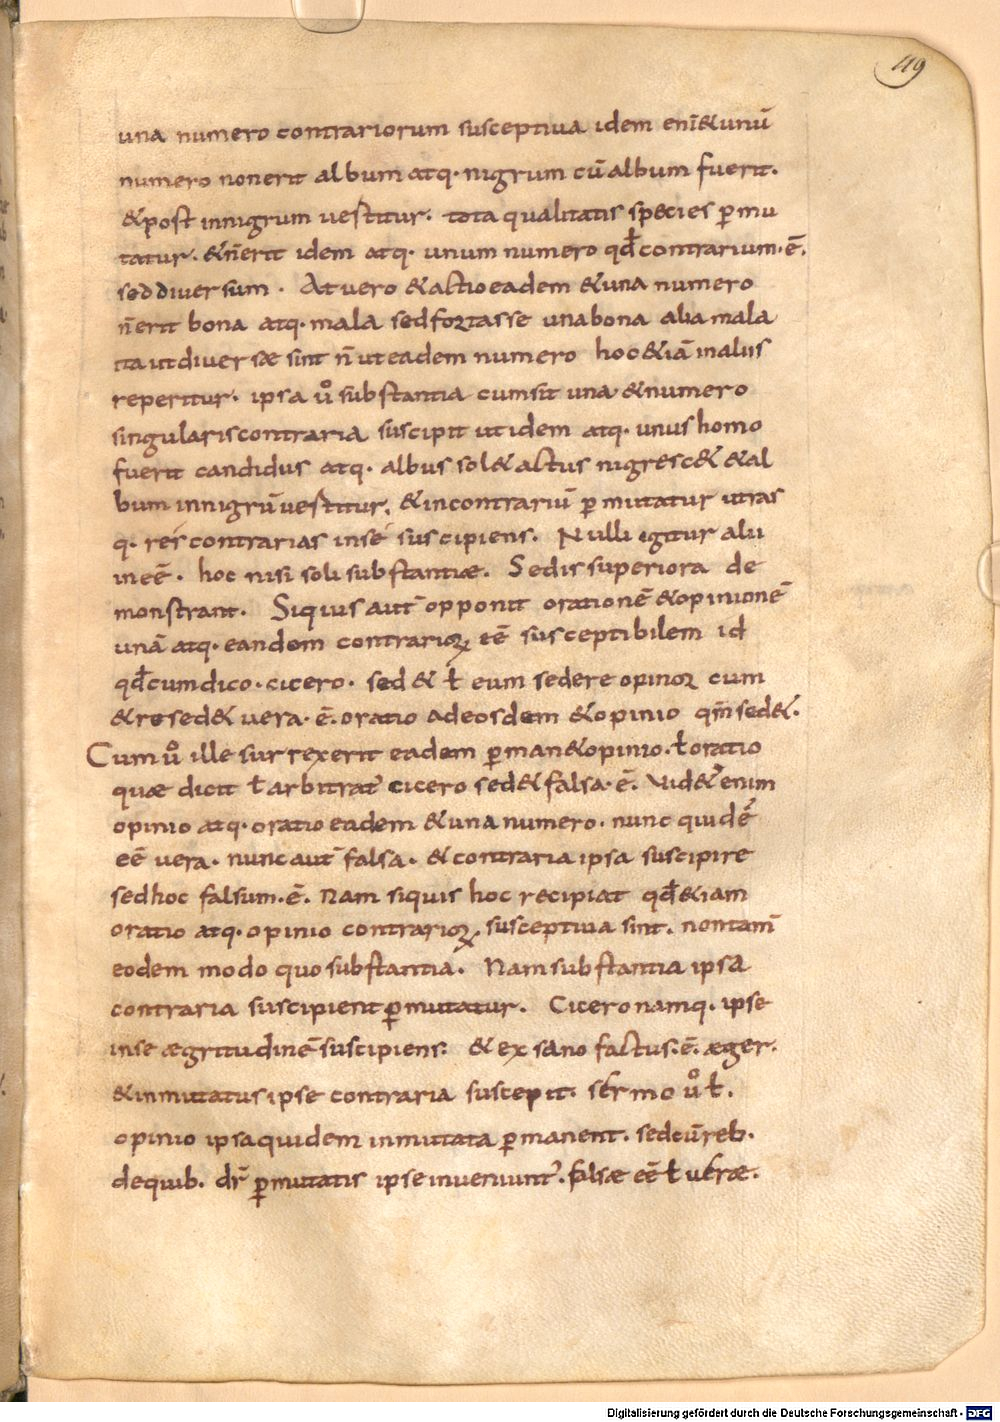 119
una numero contrariorum susceptiua idem eni̅ & unu̅
numero non erit album atq· nigrum cu̅ album fuerit·
& post in nigrum uestitur· tota qualitatis species p̲mu
tatur· & n̅ erit idem atq· unum numero qd̅ contrarium· e̅·
sed diuersum · At uero & actio eadem & una numero
n̅ erit bona atq· mala sed fortasse una bona alia mala
ita ut diuersæ sint n̅ ut eadem numero hoc &ia̅ in aliis
reperitur· ipsa uͦ substantia cum sit una & numero
singularis contraria suscipit ut idem atq· unus homo
fuerit candidus atq· albus sol& actus nigresc& & al
bum in nigru̅ uestitur, & in contrariu̅ p̲mutatur utras
q· res contrarias in se suscipiens· Nulli igitur alii
inee̅· hoc nisi soli substantiæ· Sed is superiora de
monstrant· Si quis aut̅ opponit oratione̅ & opinione̅
una̅ atq· eandem contrarioꝝ ee̅ susceptibilem id
qd̅ cum dico· cicero· sed& ł eum sedere opinor cum
& re sed& uera· e̅· oratio adeosdem & opinio qm̅ sed&·
Cum uͦ ille surrexerit eadem p̲man& opinio· ł oratio
quæ dicit ł arbitrat᷑ cicero sed& falsa· e̅· Vid&᷑ enim
opinio atq· oratio eadem & una numero· nunc quide̅
ee̅ uera· nunc aut̅ falsa· & contraria ipsa suscipire
sed hoc falsum· e̅· Nam siquis hoc recipiat qd̅ &iam
oratio atq· opinio contrarioꝝ susceptiua sint· non tam̅
eodem modo quo substantia· Nam substantia ipsa
contraria suscipient p̲mutatur· Cicero namq· ipse
in se ægritudine̅ suscipiens· & ex sano factus· e̅· æger·
& inmutatus ipse contraria suscepit· sermo uͦ ł·
opinio ipsa quidem inmutata p̲manent· sed cu̅ reb·
de quib· dr̅ p̲mutatis ipse inueniunt᷑· falsæ ee̅ ł ueræ·
Digitalisierung gefördert durch die Deutsche Forschungsgemeinschaft - DFG